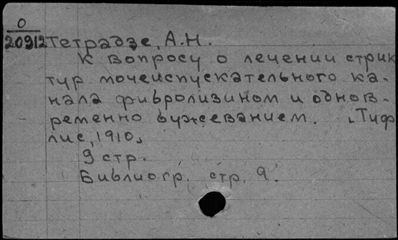 О
20912 Тетрадзе, А.Н.
К вопросу о лечении стрик
тур мочеиспускательного ка-
нала фибролизином и однов-
ременно бужеванием. Тиф
лис, 1910.
9 стр.
Библиогр. стр. 9.